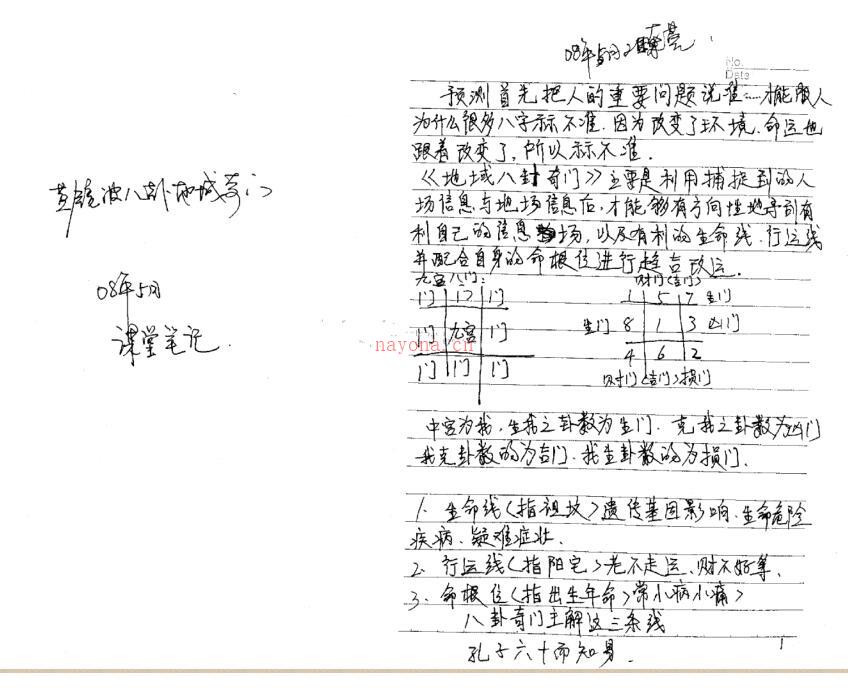 黄镜波八卦地域奇门
08年5月
课堂笔记
08年5月2
No.
Date
预测首先把人的重要问题说准……才能服人
为什么很多八字示不准.因为改变了环境.命运也
跟着改变了,所以示不准.
《地域八卦奇门》主要是利用捕捉到的人
场信息与地场信息后.才能够有方向性地寻到有
利自己的信息场,以及有利的生命线.行运线
并配合自身的命根位进行趋吉改运.
九宫八门:
门 门 门
门 九宫 门
门 门 门
财门(吉门)
1 5 7 生门
生门 8 1 3 凶门
4 6 2
财门(吉门)损门
中宫为我.生我之卦数为生门.克我之卦数为凶门
我克卦数的为吉门.我生卦数的为损门.
1. 生命线(指祖坟)遗传基因影响.生命危险
疾病、疑难症状.
2. 行运线(指阳宅)老不走运、财不好等.
3. 命根位(指出生年命)常小病小痛)
八卦奇门主解这三条线
孔子六十而知易.
1
nayona.cn